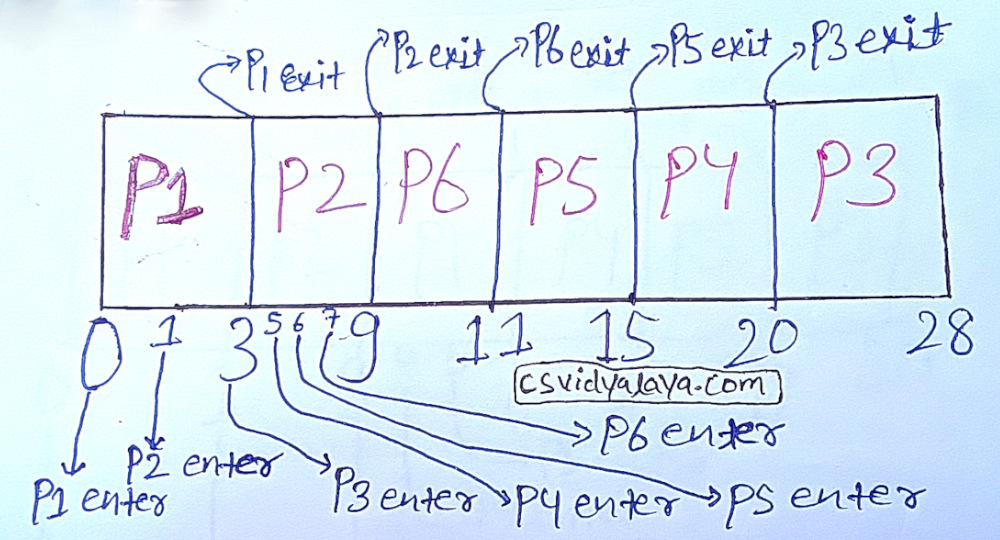 P1 exit P2 exit P6 exit P5 exit P3 exit
P1 P2 P6 P5 P4 P3
0 1 3 5 6 7 9 11 15 20 28
csvidyalaya.com
P6 enter
P2 enter
P1 enter P3 enter P4 enter P5 enter